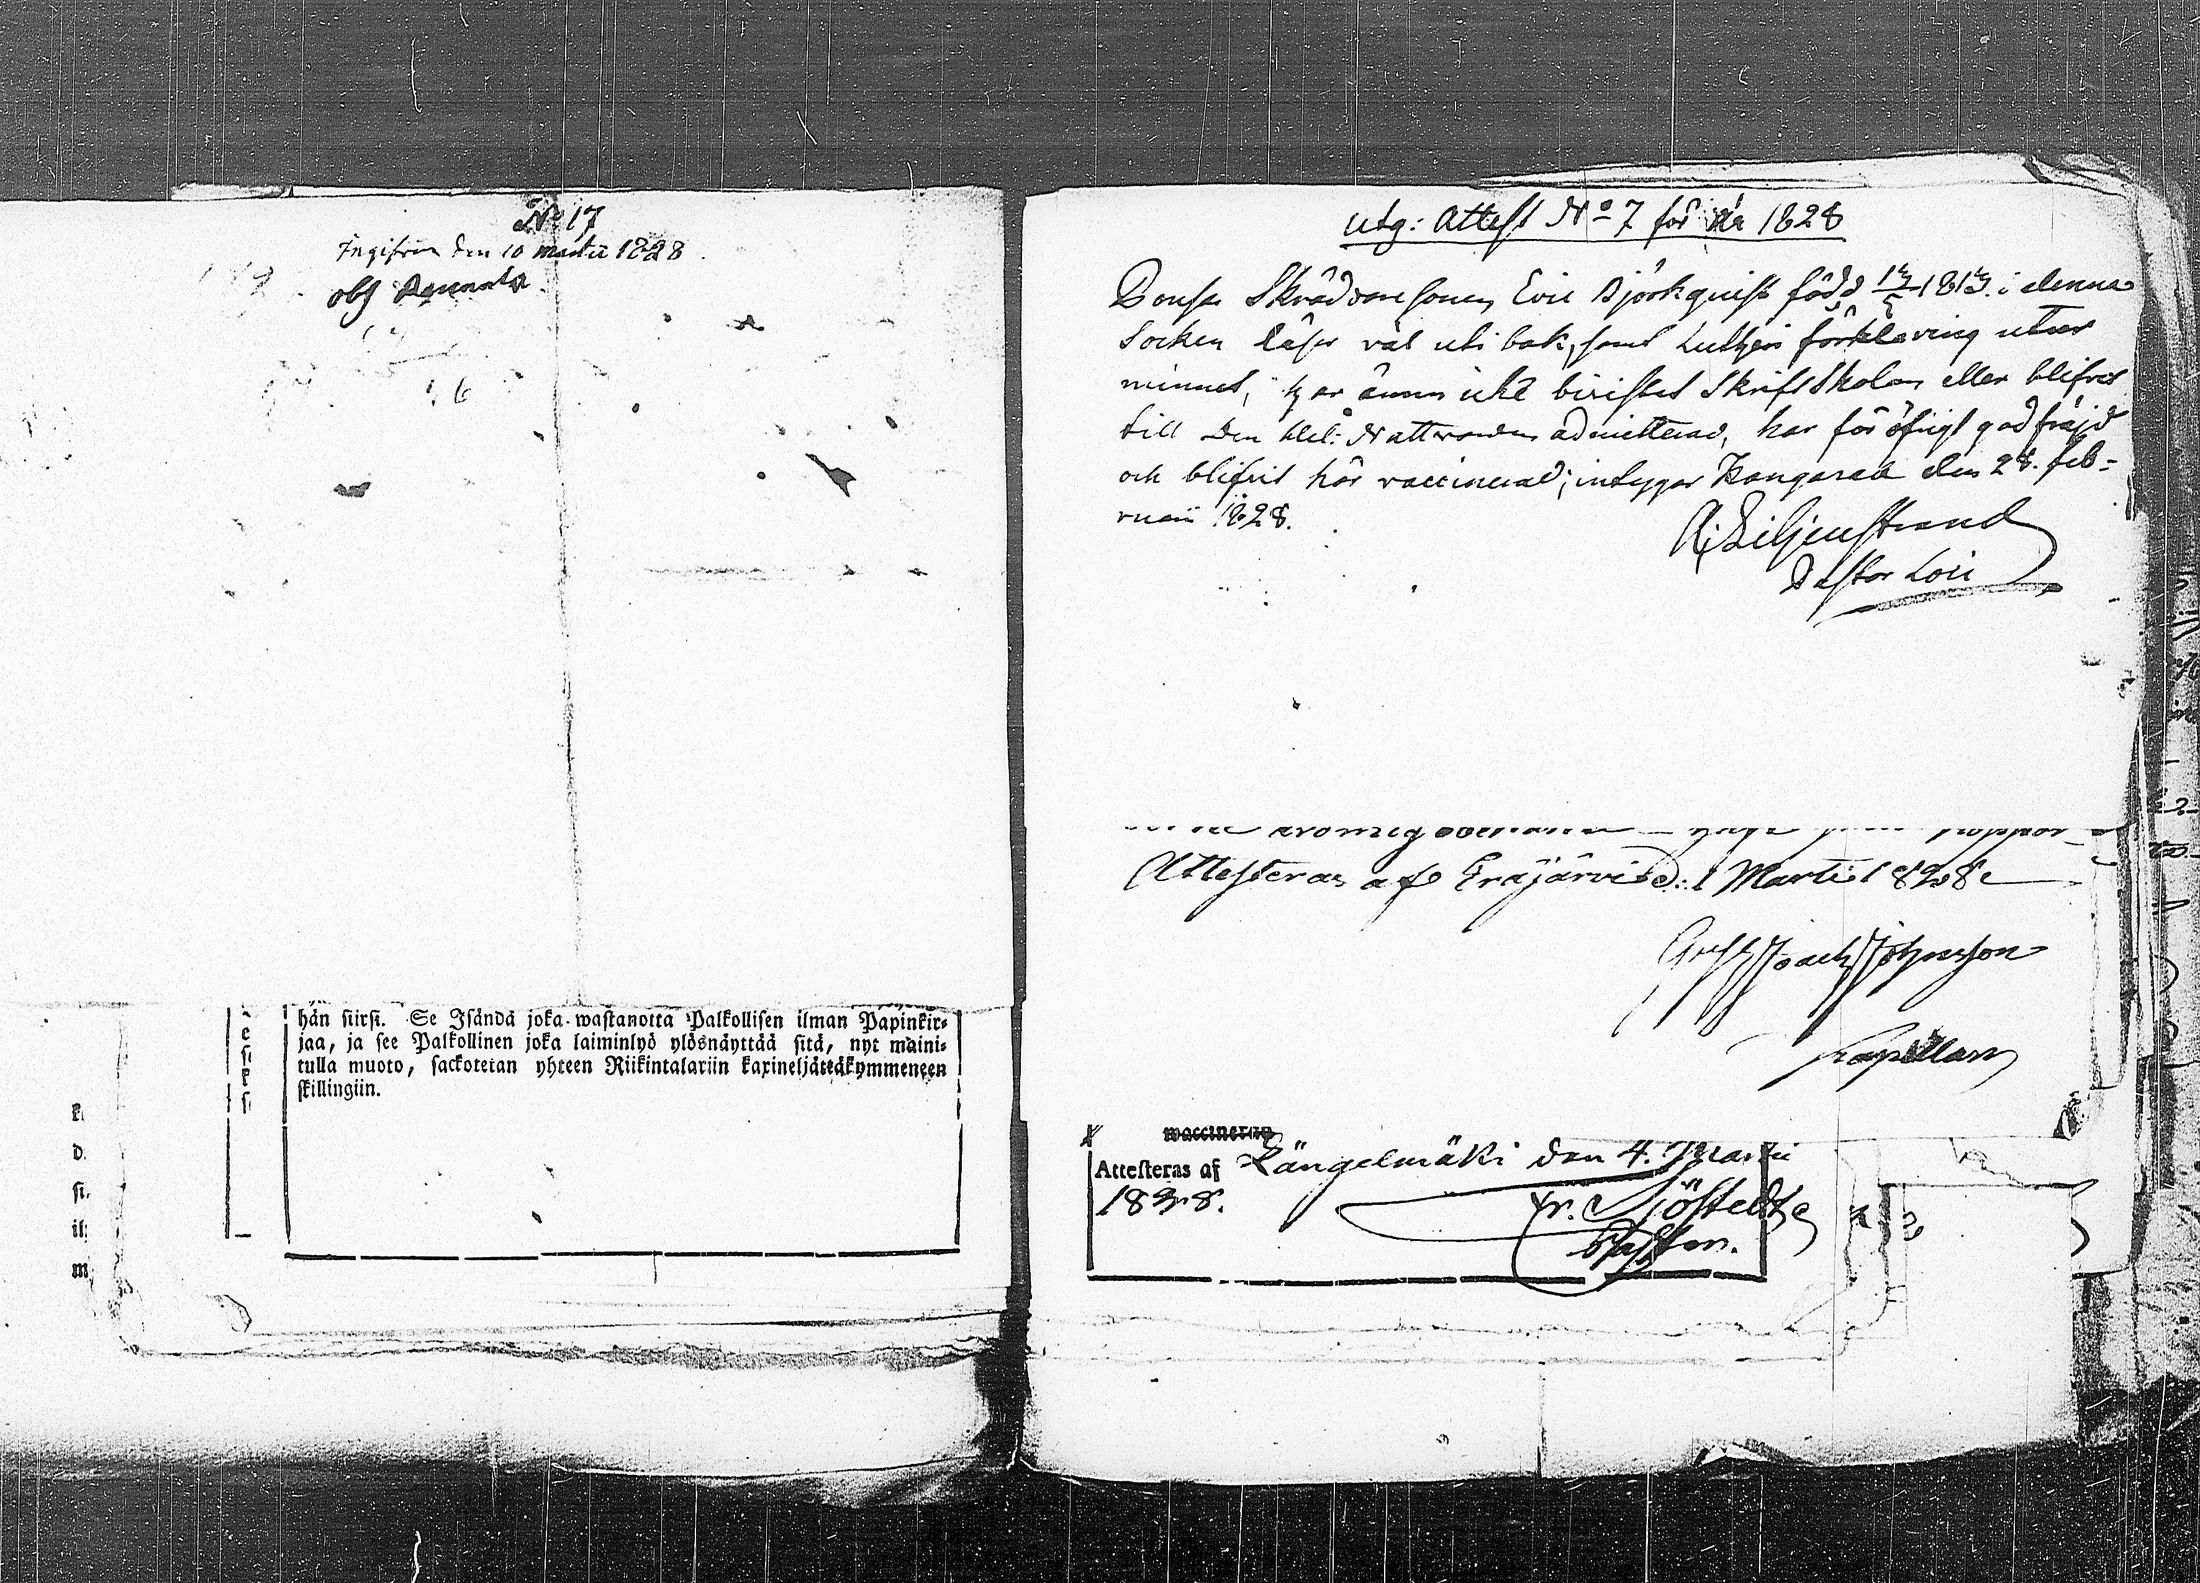 No 17
Ingifven den 10 martii 1828
obj
hän siirsi. Se Isändä joka wastanotta Palkollisen ilman Papinkir=
jaa, ja see Palkollinen joka laiminlyö ylösnäyttää sitä, nyt maini=
tulla muoto, sackotetan yhteen Riikintalariin kaxineljättäkymmeneen
skillingiin.
utg: Attest No 7 för år 1828
Skräddaresonen Eric Björkquist född 1813. i denna
Socken läser väl uti bok, samt Lutheri förklaring utur
minnet, har ännu icke bivistat Skriftskolan eller blifvit
till den Hel: Nattvarden admitterad, har för öfrigt god fräjd
och blifvit här vaccinerad; intygar Kangasala den 28. feb=
ruarii 1828.
A: Liljenstrand
Pastor Loci
Attesteras af Eräjärvi d: 1 Martii 1828
Gust Joach Johnsson
Capellan
waccinerad
Attesteras af Längelmäki den 4. Martii
1828.
Fr. Sjöstedt
Pastor.